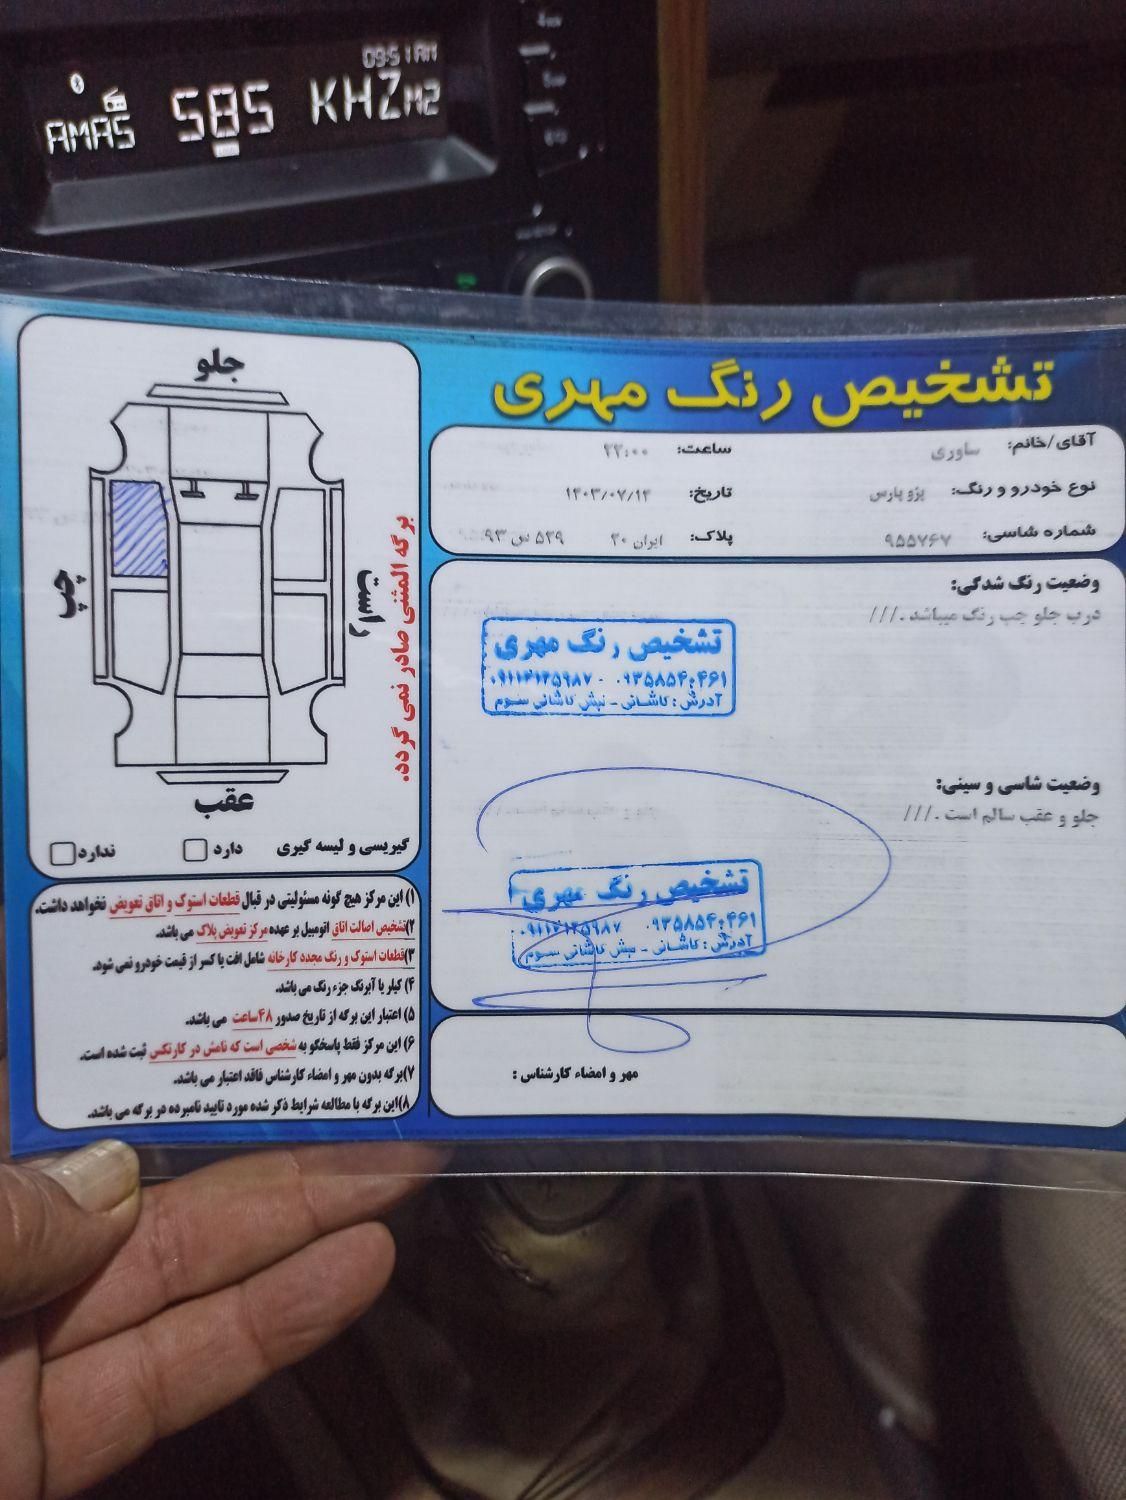 09:51 AM
AMAS 585 KHZ M2
تشخیص رنگ مهری
آقای/خانم: ساوری ساعت: ۲۲:۰۰
نوع خودرو و رنگ: پژو پارس تاریخ: ۱۴۰۳/۰۷/۱۴
شماره شاسی: ۹۵۵۷۶۷ پلاک: ایران ۲۰ ۵۴۹ س ۹۳
وضعیت رنگ شدگی:
درب جلو چپ رنگ میباشد ./ / /
تشخیص رنگ مهری
۰۹۱۱۲۱۲۵۹۸۷ - ۰۹۳۵۸۵۴۰۴۶۱
آدرش : کاشانی - نبش کاشانی سوم
وضعیت شاسی و سینی:
جلو و عقب سالم است ./ / /
تشخیص رنگ مهری
۰۹۱۱۲۱۲۵۹۸۷ ۰۹۳۵۸۵۴۰۴۶۱
آدرش : کاشانی - نبش کاشانی سوم
مهر و امضاء کارشناس :
جلو
چپ
راست
عقب
برگه المثنی صادر نمی گردد.
گیریسی و لیسه گیری دارد ندارد
۱) این مرکز هیچ گونه مسئولیتی در قبال قطعات استوک و اتاق تعویض نخواهد داشت.
۲)تشخیص اصالت اتاق اتومبیل بر عهده مرکز تعویض پلاک می باشد.
۳)قطعات استوک و رنگ مجدد کارخانه شامل افت یا کسر از قیمت خودرو نمی شود.
۴) کیلر یا آبرنگ جزء رنگ می باشد.
۵) اعتبار این برگه از تاریخ صدور ۴۸ساعت می باشد.
۶) این مرکز فقط پاسخگو به شخصی است که نامش در کارتکس ثبت شده است.
۷)برگه بدون مهر و امضاء کارشناس فاقد اعتبار می باشد.
۸)این برگه با مطالعه شرایط ذکر شده مورد تایید نامبرده در برگه می باشد.